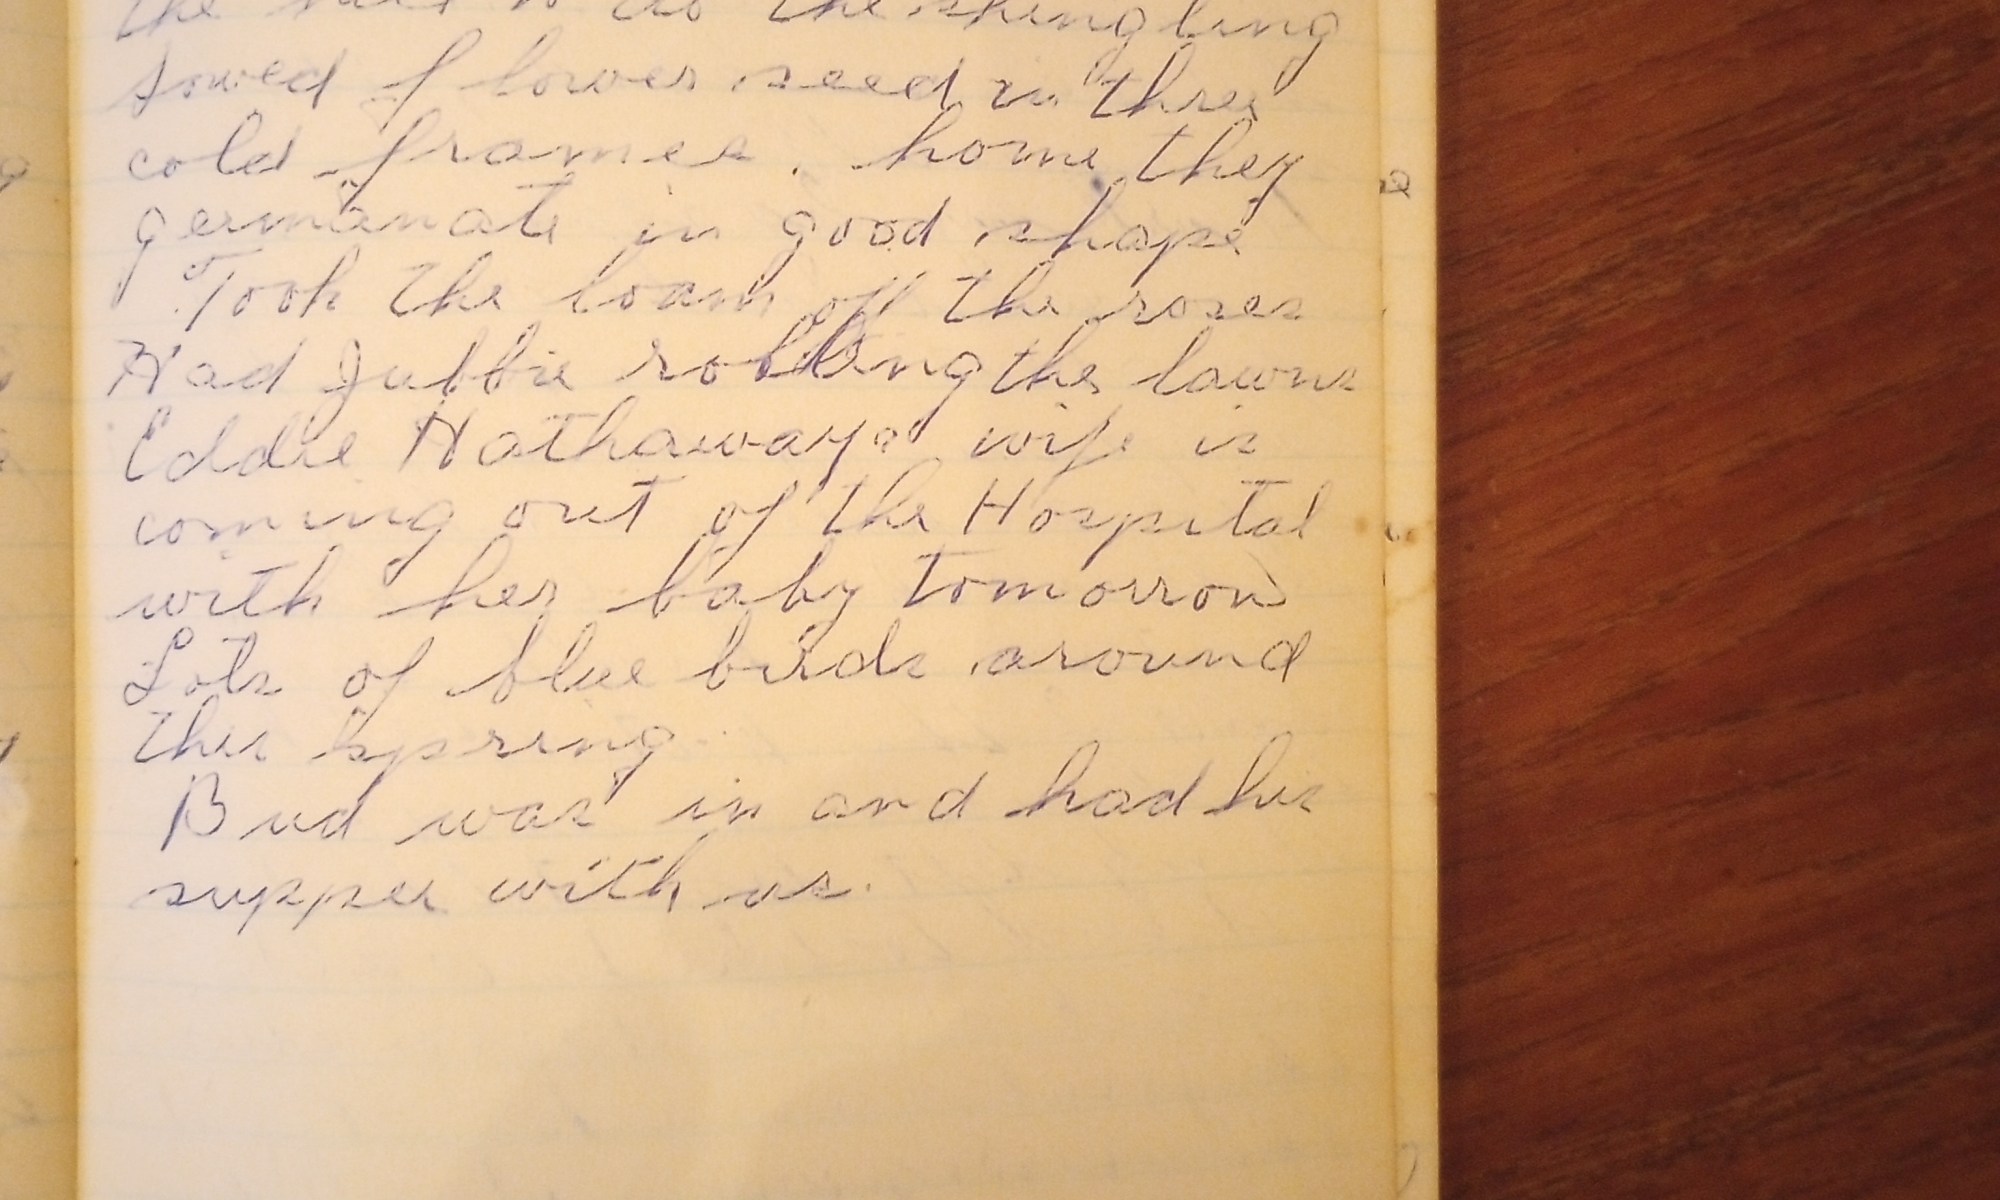 the to do the shingling
Sowed flower seed in three
cold frames. home they
germanate in good shape
Took the loam off the roses
Had Jubbie rolling the lawns
Eddie Hathaways wife is
coming out of the Hospital
with her baby tomorrow
Lots of blue birds around
this spring.
Bud was in and had his
supper with us.